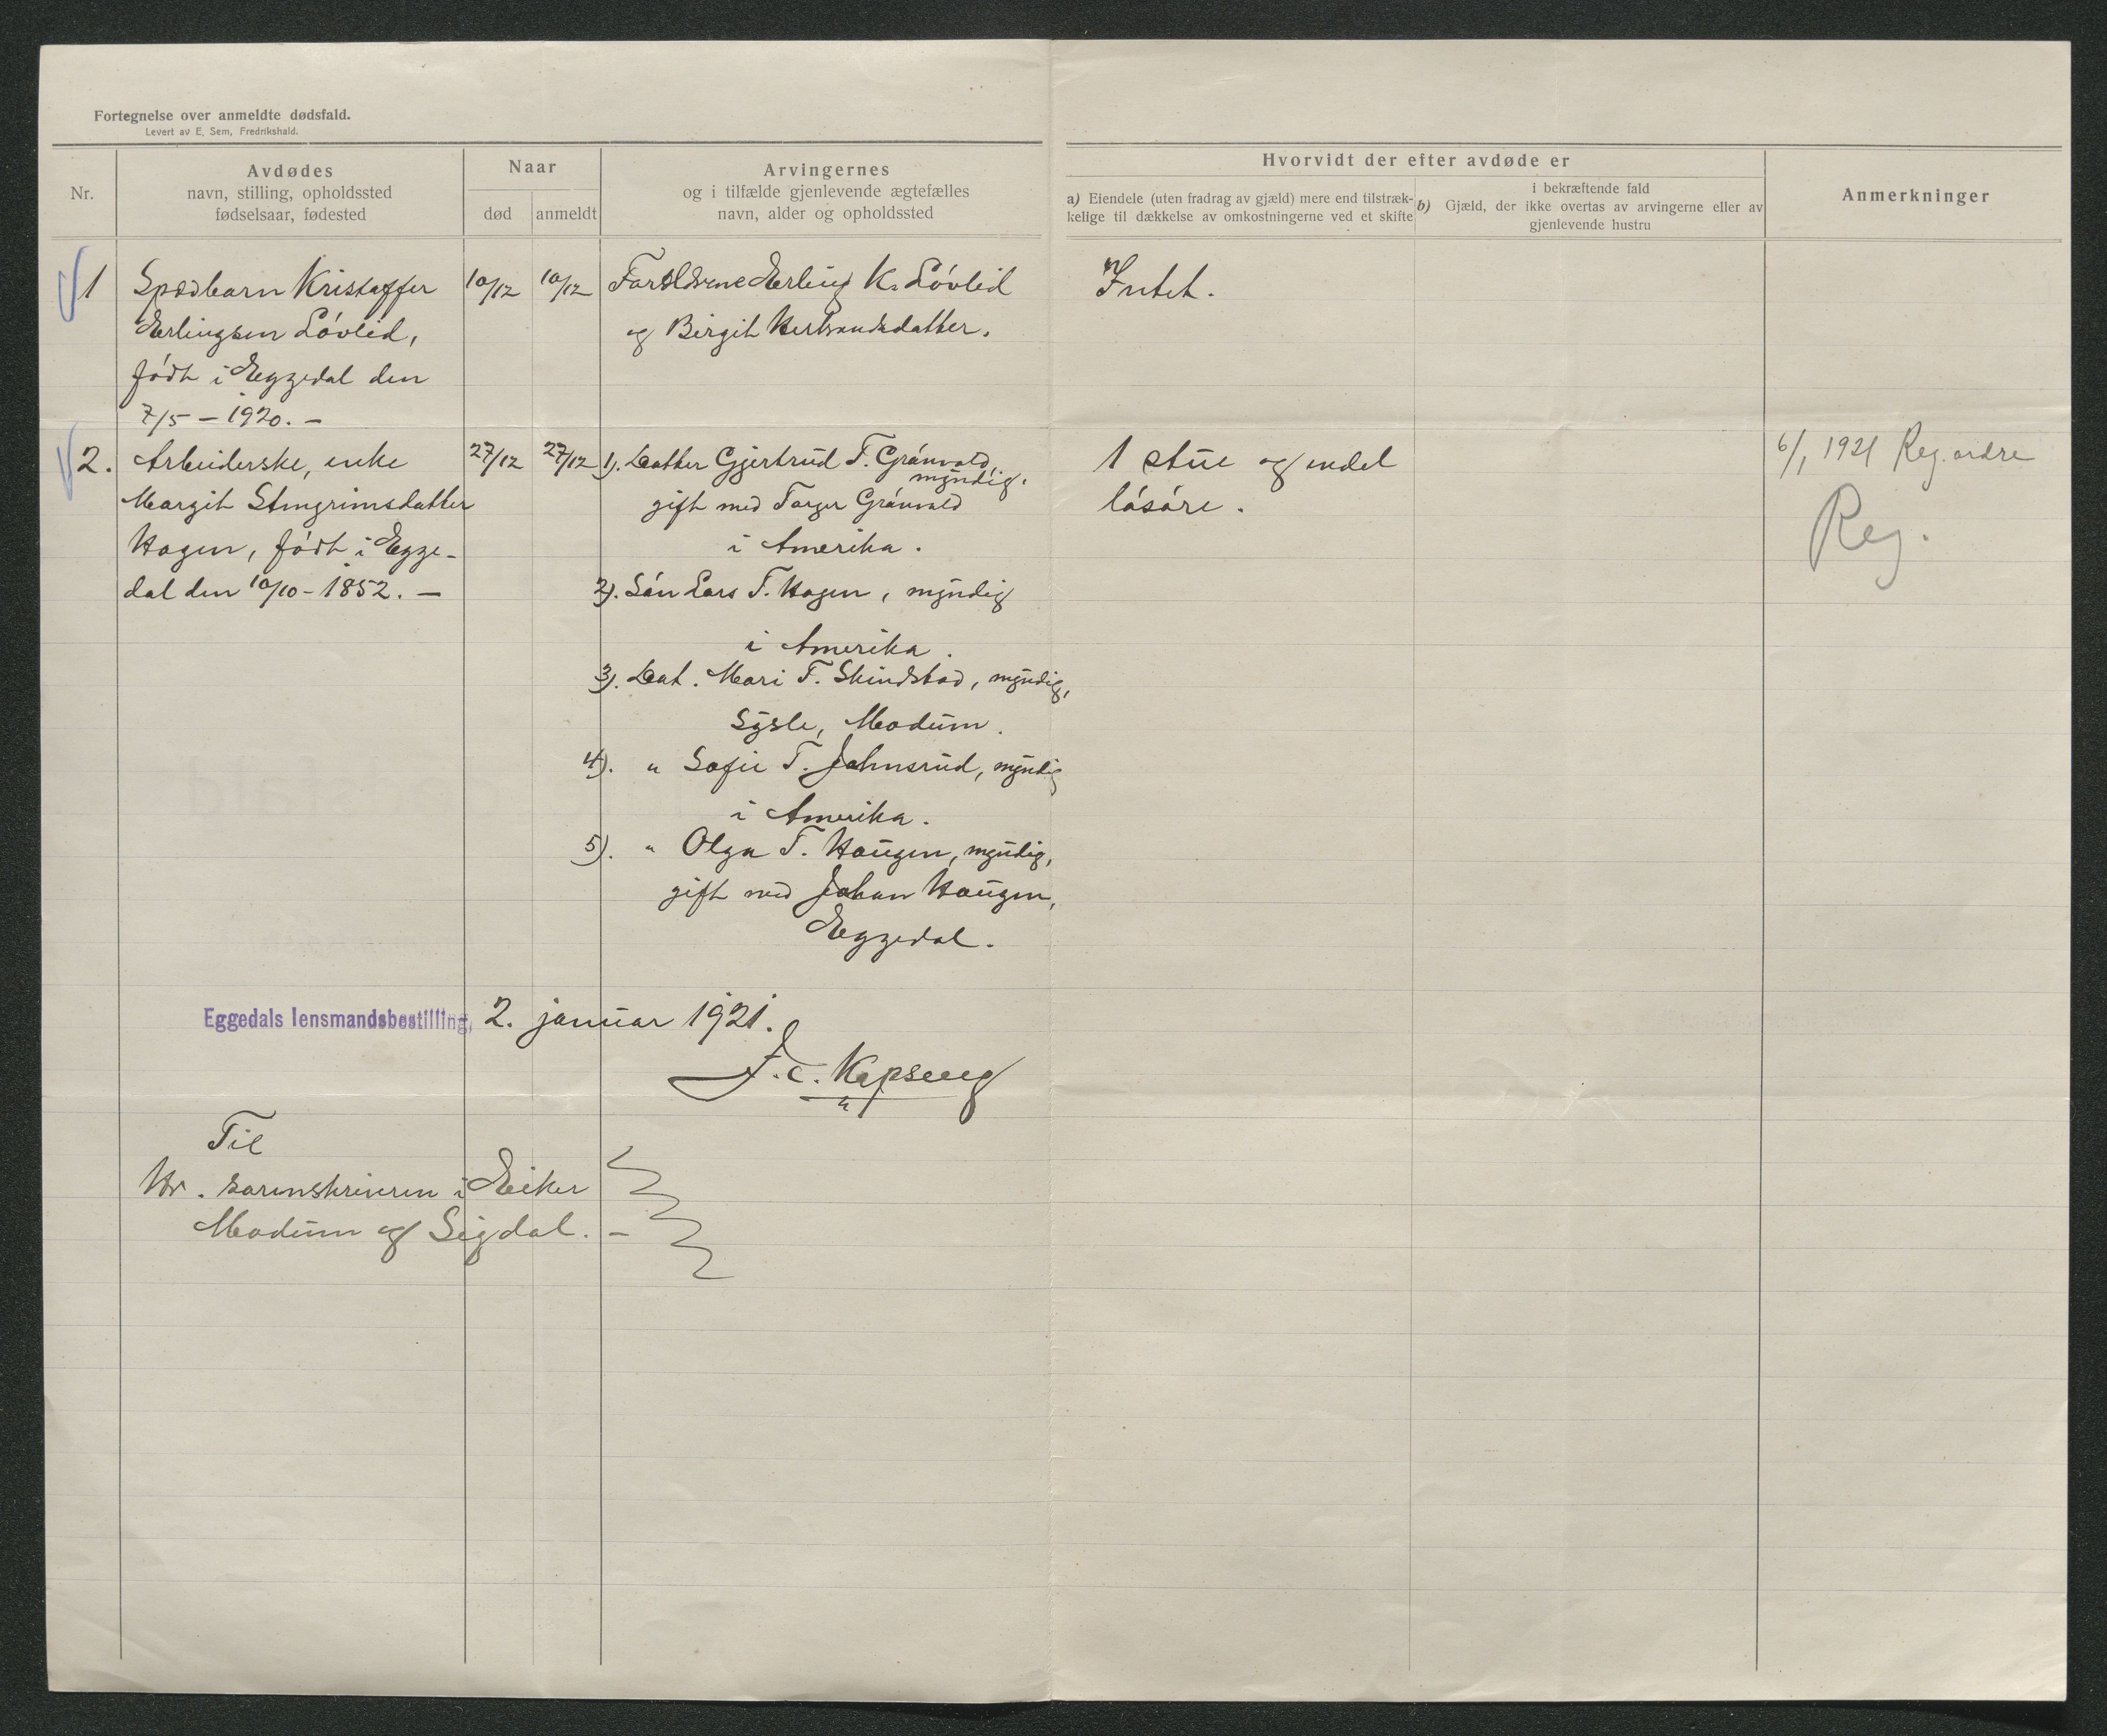 Fortegnelse over anmeldte dødsfald.
Levert av E. Sem, Fredrikshald.
Nr.
Avdødes
navn, stilling, opholdssted
fødselsaar, fødested
Naar
død
anmeldt
Arvingernes
og i tilfælde gjenlevende ægtefælles
navn, alder og opholdssted
Hvorvidt der efter avdøde er
a) Eiendele (uten fradrag av gjæld) mere end tilstræk-
kelige til dækkelse av omkostningerne ved et skifte
i bekræftende fald
b) Gjæld, der ikke overtas av arvingerne eller av
gjenlevende hustru
Anmerkninger
1
Spædbarn Kristoffer
Erlingsen Løvlid,
født i Eggedal den
7/5 - 1920. -
10/12
10/12
Forældrene Erling K. Løvlid
og Birgit Herbrandsdatter.
Intet.
2.
Arbeiderske, enke
Margit Stengrimsdatter
Hagen, født i Egge-
dal den 10/10 - 1852. -
27/12
27/12
1). Datter Gjertrud T. Grønvold,
myndig.
gift med Torger Grønvold
i Amerika.
2). Søn Lars T. Hagen, myndig
i Amerika.
3). Dat. Mari T. Skindstad, myndig,
Sysle, Modum.
4). " Sofie T. Johnsrud, myndig
i Amerika.
5). " Olga T. Haugen, myndig,
gift med Johan Haugen,
Eggedal.
1 stue og endel
løsøre.
6/1 1921 Reg. ordre
Reg.
Eggedals lensmandsbestilling, 2. januar 1921.
Kopseng
Til
Hr. sorenskriveren i Eiker
Modum og Sigdal. -